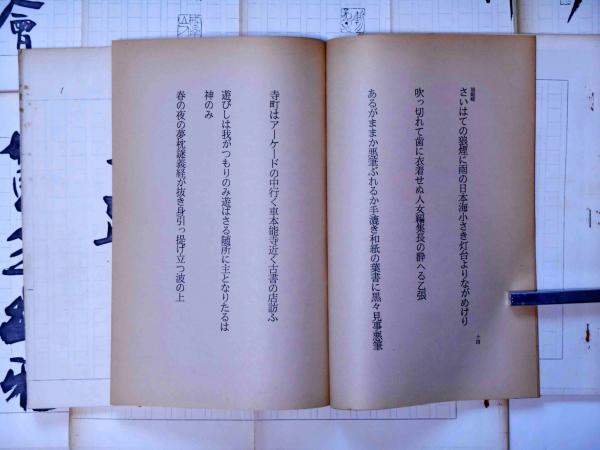 さいはての狼煙に雨の日本海小さき灯台よりながめけり
吹っ切れて歯に衣着せぬ人女編集長の酔へる乙張
あるがままか悪筆ぶれるか手漉き和紙の葉書に黒々見事悪筆
十四
寺町はアーケードの中行く車本能寺近く古書の店訪ふ
遊びしは我がつもりのみ遊ばさる随所に主となりたるは
神のみ
春の夜の夢枕謎義経が抜き身引っ提げ立つ波の上